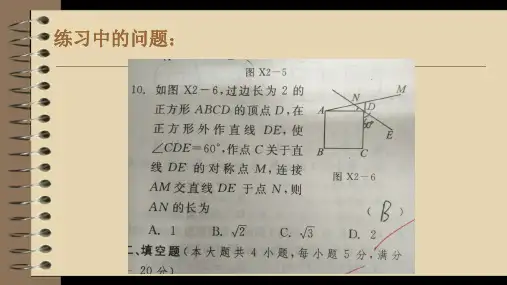 练习中的问题：
图 X2-5
10. 如图 X2-6,过边长为 2 的
正方形 ABCD 的顶点 D,在
正方形外作直线 DE,使
∠CDE=60°,作点 C 关于直
线 DE 的对称点 M,连接
AM 交直线 DE 于点 N,则
AN 的长为
( B )
A. 1 B. √2 C. √3 D. 2
A N D M
60°
E
B C
图 X2-6
二、填空题(本大题共 4 小题,每小题 5 分,满分
20 分)